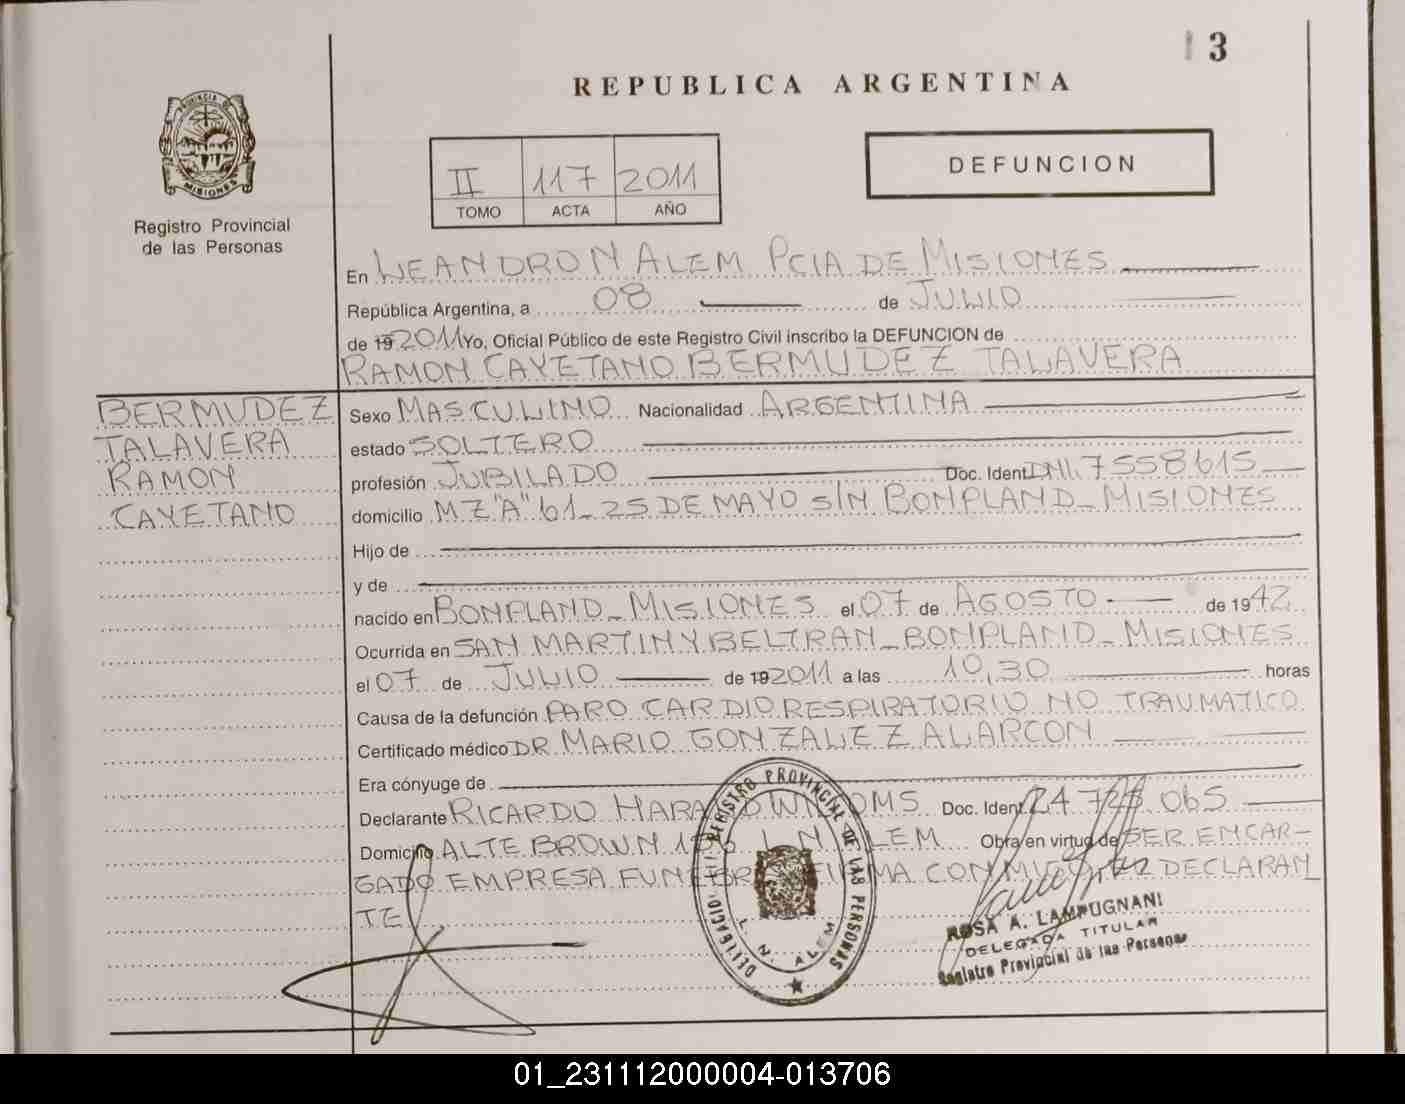 3
REPUBLICA ARGENTINA
PROVINCIA DE
MISIONES
Registro Provincial
de las Personas
II 117 2011
TOMO ACTA AÑO
DEFUNCION
En LEANDRO N ALEM PCIA DE MISIONES
República Argentina, a 08 de JULIO
de 19 2011 Yo, Oficial Público de este Registro Civil inscribo la DEFUNCION de
RAMON CAYETANO BERMUDEZ TALAVERA
BERMUDEZ
TALAVERA
RAMON
CAYETANO
Sexo MASCULINO Nacionalidad ARGENTINA
estado SOLTERO
profesión JUBILADO Doc. Ident. DNI. 7558615
domicilio MZ "A" 61_25 DE MAYO S/N BONPLAND_MISIONES
Hijo de
y de
nacido en BONPLAND_MISIONES el 07 de AGOSTO de 1942
Ocurrida en SAN MARTIN Y BELTRAN_BONPLAND_MISIONES
el 07 de JULIO de 19 2011 a las 10,30 horas
Causa de la defunción PARO CARDIO RESPIRATORIO NO TRAUMATICO
Certificado médico DR MARIO GONZALEZ ALARCON
Era cónyuge de
Declarante RICARDO Doc. Ident. 065
Domicilio ALTE BROWN L N ALEM Obra en virtud de SER ENCAR-
GADO EMPRESA FUNEBRE FIRMA CON DECLARAN
TE
DELEGACION REGISTRO PROVINCIAL DE LAS PERSONAS
L. N. ALEM
ROSA A. LAMPUGNANI
DELEGADA TITULAR
Registro Provincial de las Personas
01_231112000004-013706